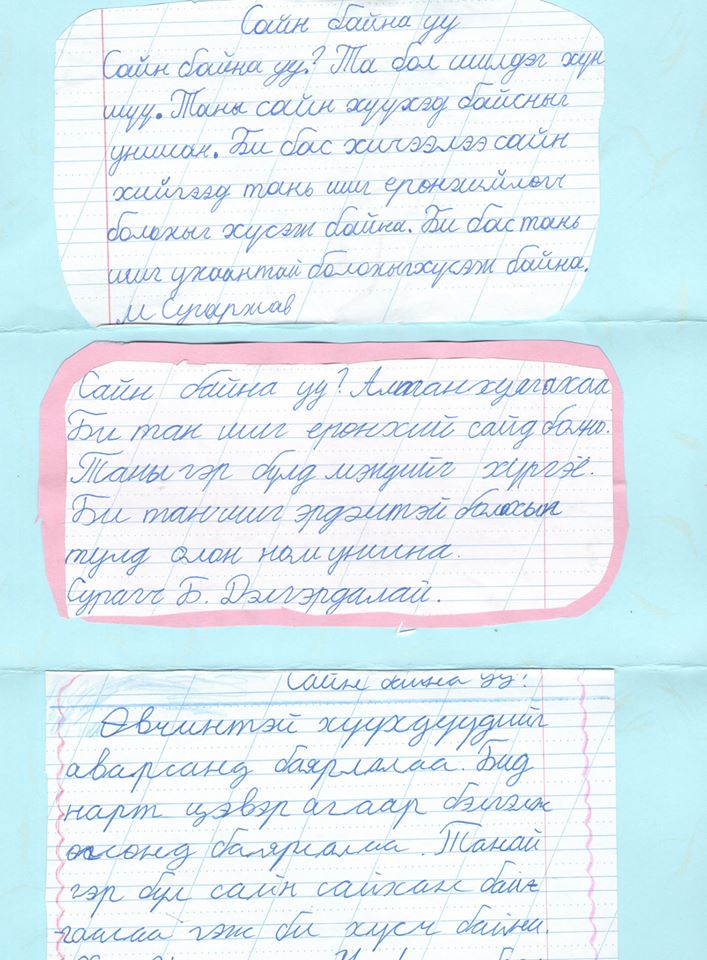 Сайн байна уу
Сайн байна уу? Та бол шилдэг хүн
шүү. Таны сайн хүүхэд байсныг
уншсан. Би бас хичээлээ сайн
хийгээд тань шиг ерөнхийлөгч
болохыг хүсэж байна. Би бас тань
шиг ухаантай болохыг хүсэж байна.
М Сугаржав
Сайн байна уу? Алтанхуяг ахаа
Би тан шиг ерөнхий сайд болно.
Таны гэр бүлд мэндийг хүргэе.
Би тан шиг эрдэмтэй болохын
тулд олон ном уншина.
Сурагч Б. Дэлгэрдалай.
Сайн байна уу?
Өвчинтэй хүүхдүүдийг
аварсанд баярлалаа. Бид
нарт цэвэр агаар бэлэглэж
өгсөнд баярлалаа. Танай
гэр бүл сайн сайхан бай
гаасай гэж би хүсч байна.